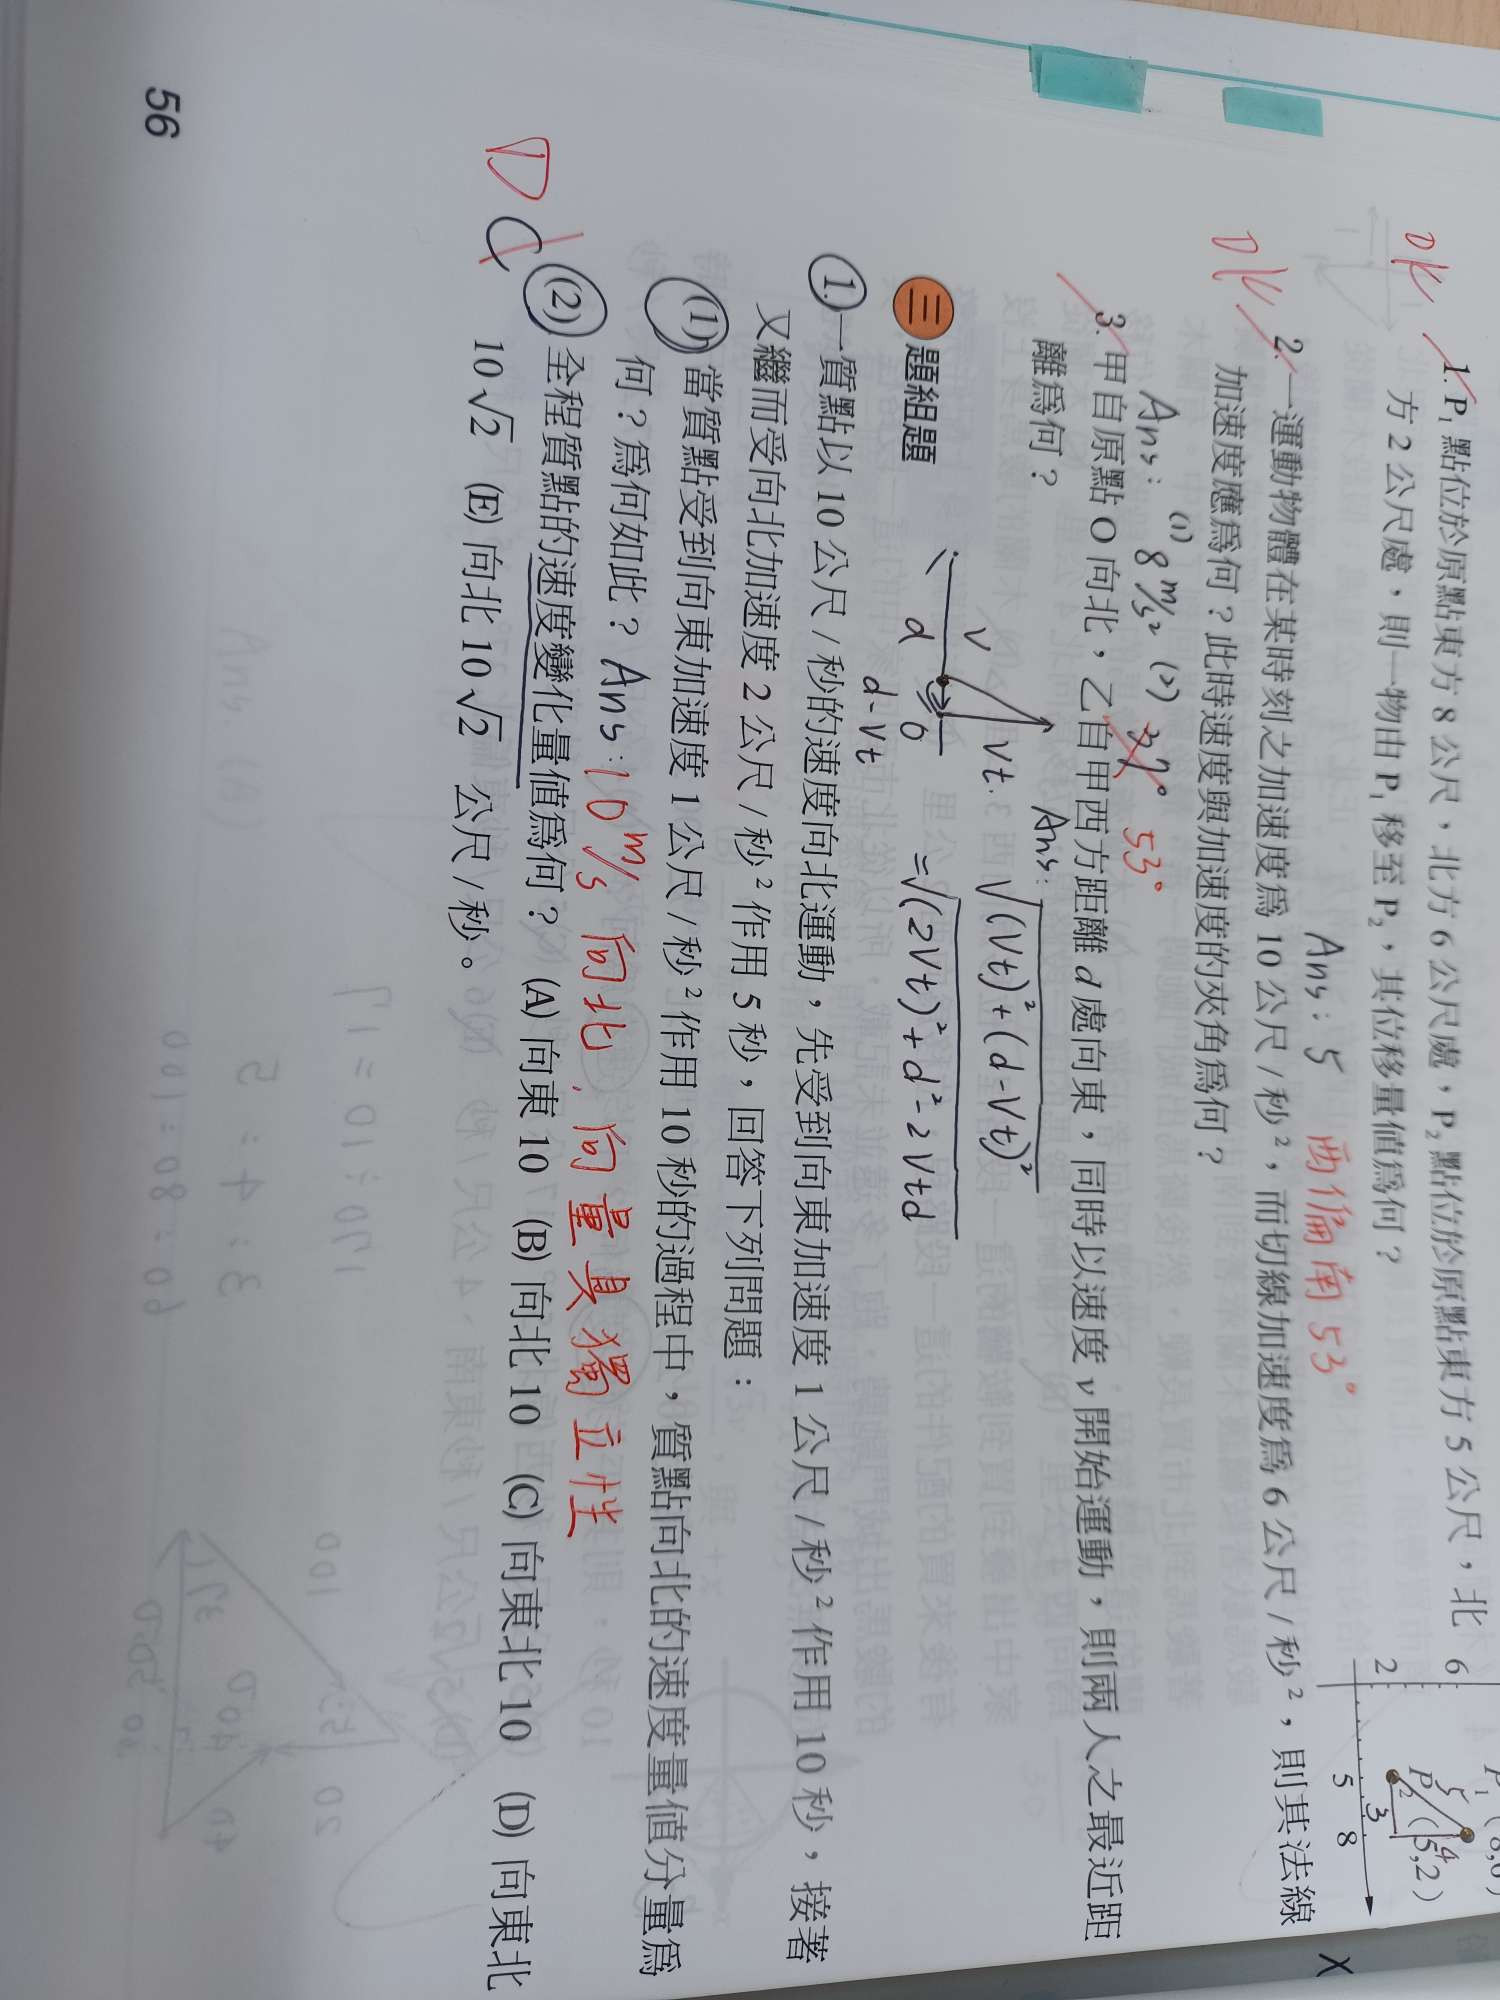 1. P₁點位於原點東方 8 公尺，北方 6 公尺處，P₂點位於原點東方 5 公尺，北
方 2 公尺處，則一物由 P₁ 移至 P₂，其位移量值為何？
Ans: 5 西偏南 53°
6
2
5 8
X
3
4
5
P₂(5,2)
DK
2. 一運動物體在某時刻之加速度為 10 公尺/秒²，而切線加速度為 6 公尺/秒²，則其法線
加速度應為何？此時速度與加速度的夾角為何？
Ans: (1) 8 m/s² (2) 37° 53°
3. 甲自原點 O 向北，乙自甲西方距離 d 處向東，同時以速度 v 開始運動，則兩人之最近距
離為何？
Ans: √(Vt)²+(d-Vt)²
=√(2Vt)²+d²-2Vtd
V
Vt
d
d-Vt
三 題組題
1. 一質點以 10 公尺/秒的速度向北運動，先受到向東加速度 1 公尺/秒²作用 10 秒，接著
又繼而受向北加速度 2 公尺/秒²作用 5 秒，回答下列問題：
(1) 當質點受到向東加速度 1 公尺/秒²作用 10 秒的過程中，質點向北的速度量值分量為
何？為何如此？Ans: 10 m/s 向北，向量具獨立性
D C (2) 全程質點的速度變化量值為何？ (A) 向東 10 (B) 向北 10 (C) 向東北 10 (D) 向東北
10√2 (E) 向北 10√2 公尺/秒。
56